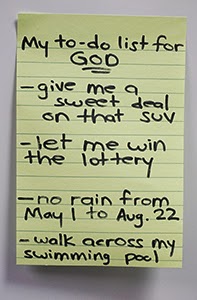 My to-do list for
GOD
- give me a
sweet deal
on that SUV
- let me win
the lottery
- no rain from
May 1 to Aug. 22
- walk across my
swimming pool